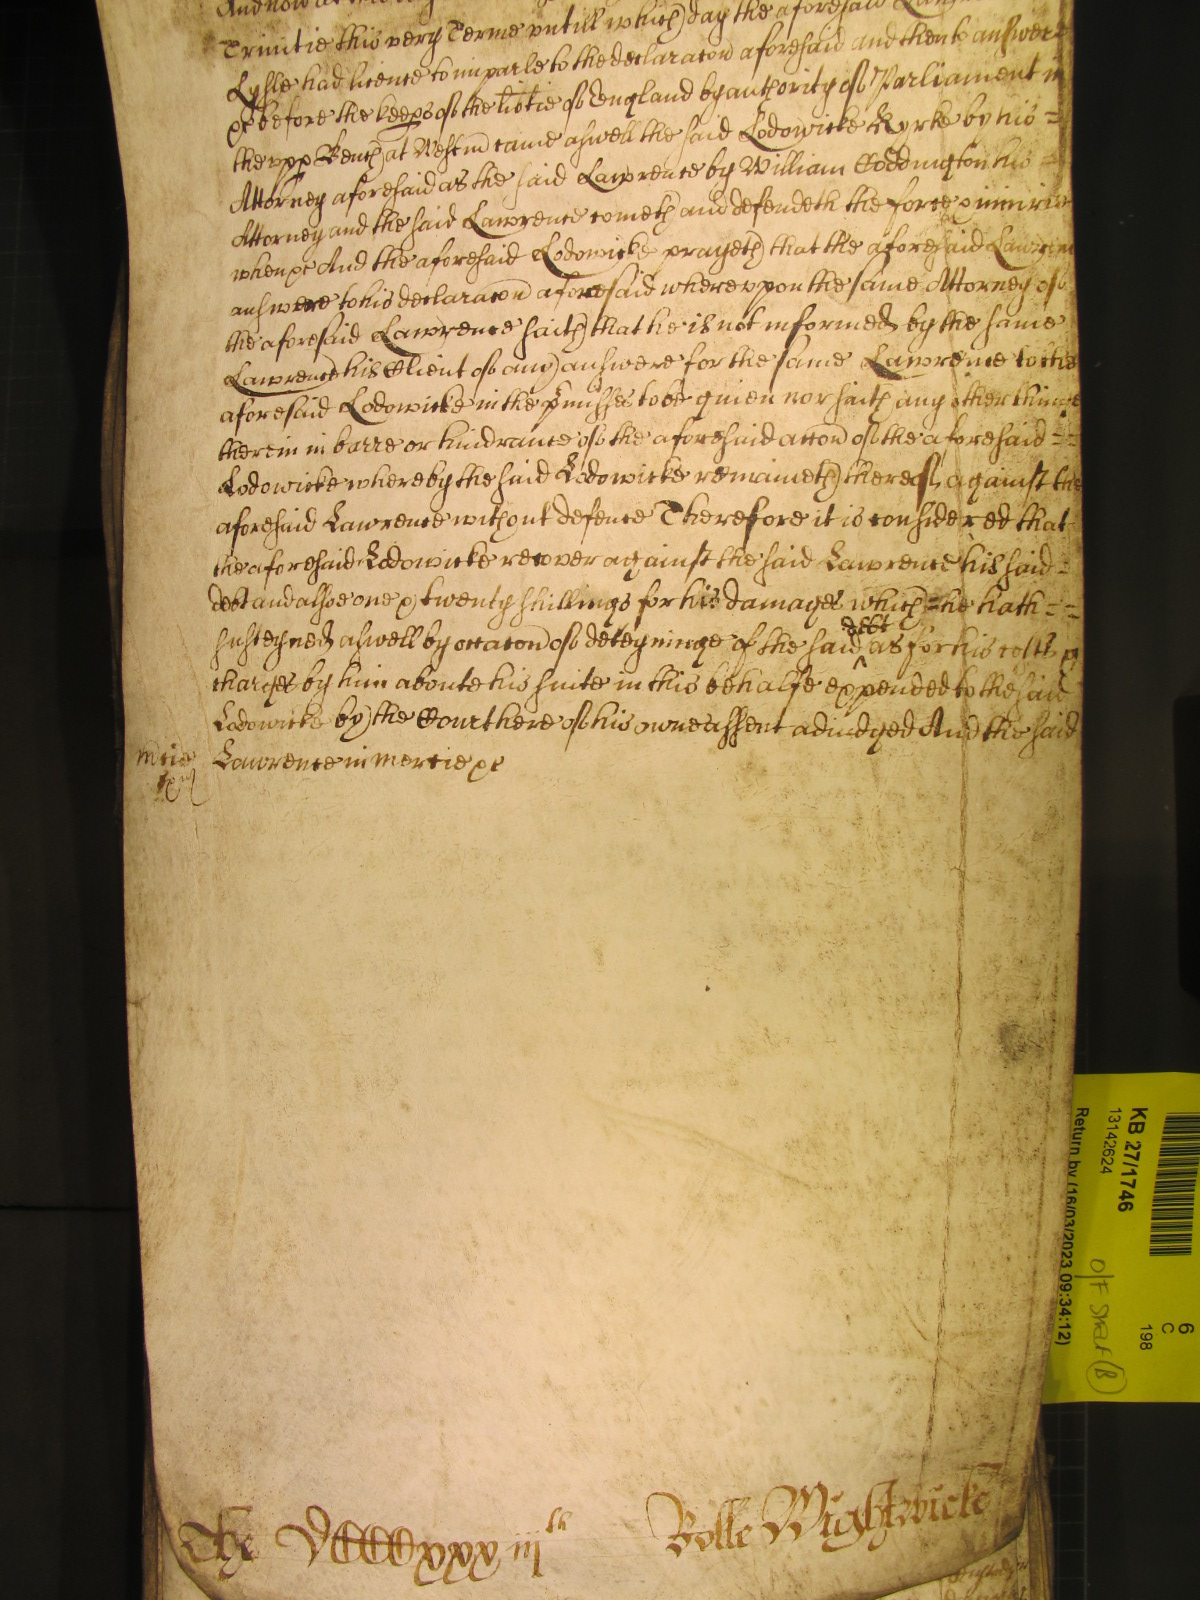 And now at this day
Trinitie this very Terme vntill which day the aforesaid
Lysle had licence to imparle to the declaracon aforesaid and then to answere
&c before the keeps of the libtie of England by authority of Parliament in
the vpp Bench at Westm came aswell the said Lodowicke Kyrke by his =
Attorney aforesaid as the said Lawrence by William Coddington his =
Attorney and the said Lawrence cometh and defendeth the force & iniurie
when &c And the aforesaid Lodowicke prayeth that the aforesaid Lawrence
answere to his declaracon aforesaid wherevpon the same Attorney of
the aforesaid Lawrence saith that he is not informed by the same
Lawrence his Client of any answere for the same Lawrence to the
aforesaid Lodowicke in the pmisses to be giuen nor saith any other thinge
therein in barre or hindrance of the aforesaid accon of the aforesaid = =
Lodowicke whereby the said Lodowicke remaineth thereof against the
aforesaid Lawrence without defence Therefore it is considered that
the aforesaid Lodowicke recover against the said Lawrence his said =
debt and alsoe one & twenty shillings for his damages which = he hath = =
susteyned aswell by occacon of deteyninge of the said debt as for his costs &
charges by him aboute his suite in this behalfe expended to the said
Lodowicke by the Court here of his owne assent adiudged And the said
mcie Lawrence in mercie &c
The DCCCCxxxiijth Rolle Wightwicke
KB 27/1746
13142624
Return by (16/03/2023 09:34:12)
6
C
198
O/F Strat (B)